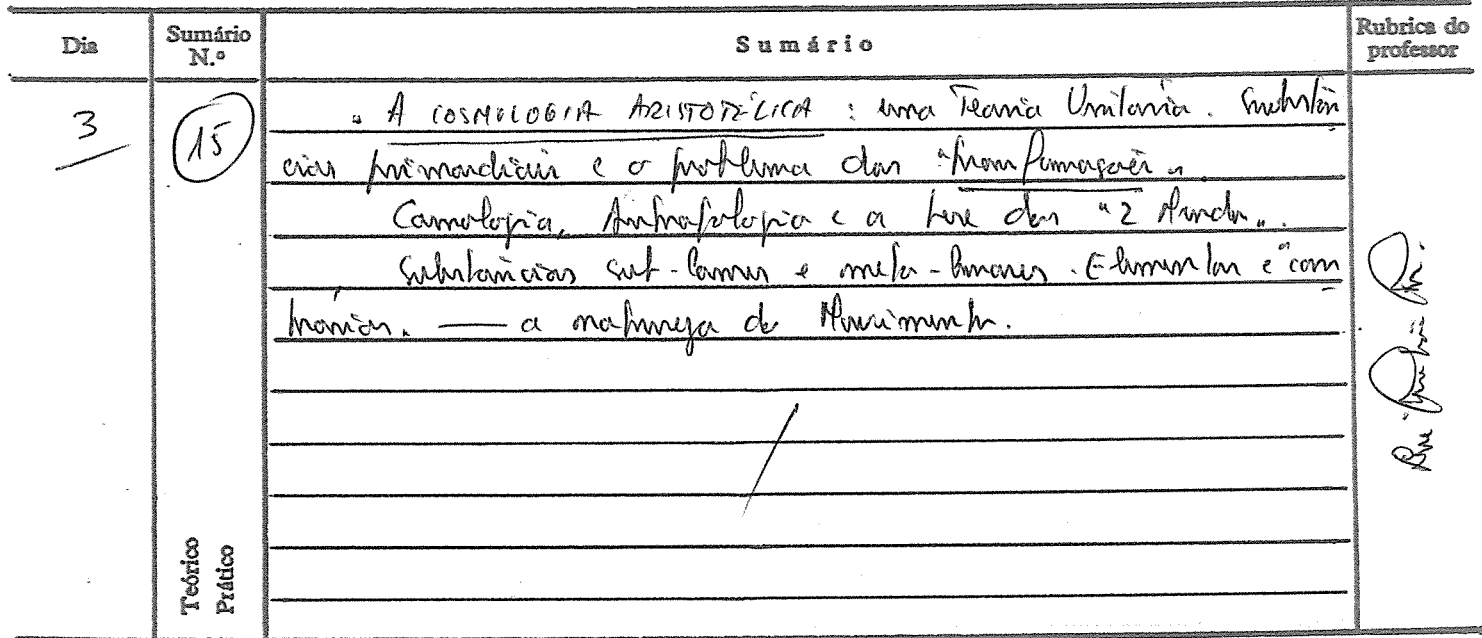 Dia
Sumário N.º
Sumário
Rubrica do professor
3
15
" A COSMOLOGIA ARISTOTÉLICA : uma Teoria Unitária. Substân
cias primordiais e o problema das "transformações".
Cosmologia, Antropologia e a tese dos "2 Mundos".
Substâncias sub-lunares e meta-lunares. Elementos e "con
trários. — a natureza do Movimento.
Teórico
Prático